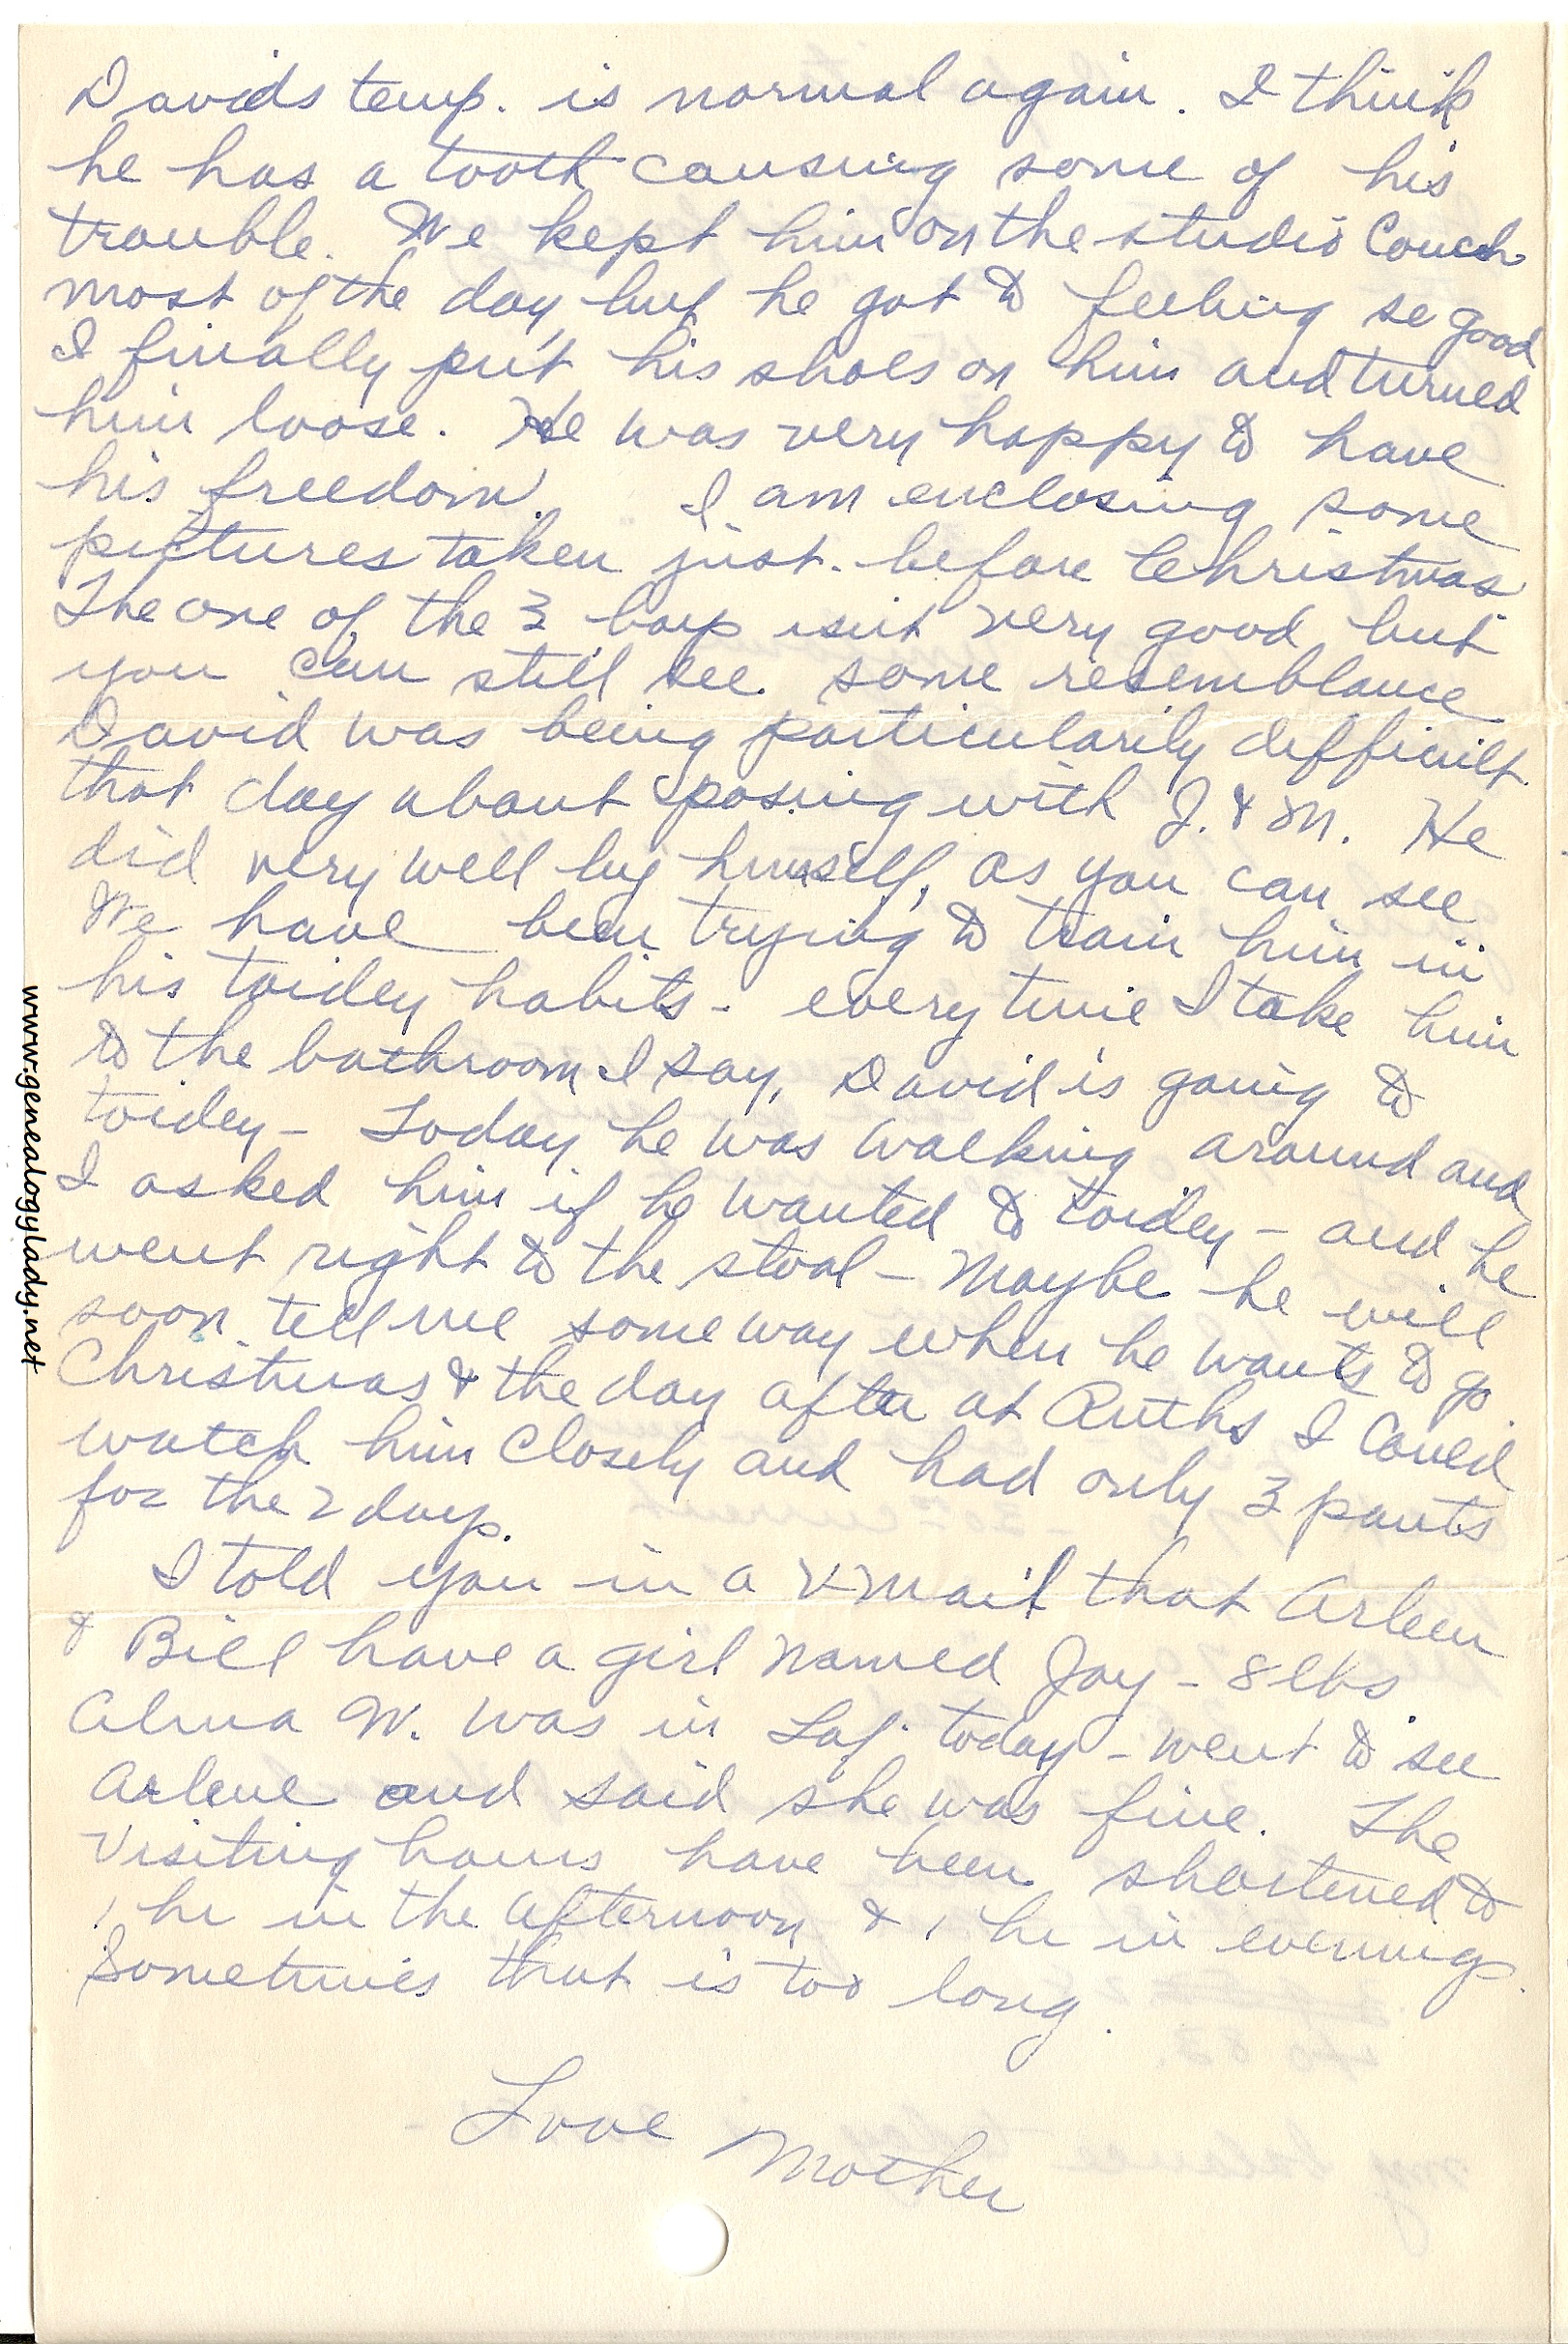 Davids temp. is normal again. I think
he has a tooth causing some of his
trouble. We kept him on the studio couch
most of the day, but he got to feeling so good
I finally put his shoes on him and turned
him loose. He was very happy to have
his freedom. I am enclosing some
pictures taken just before Christmas.
The one of the 3 boys isn't very good but
you can still see some resemblance
David was being particularily difficult
that day about posing with J. & M. He
did very well by himself, as you can see
We have been trying to train him in
his toidey habits - every time I take him
to the bathroom I say, David is going to
toidey - Today he was walking around and
I asked him if he wanted to toidey - and he
went right to the stool - Maybe he will
soon tell me some way when he wants to go.
Christmas & the day after at Ruths I could
watch him closely and had only 3 pants
for the 2 days.
I told you in a V mail that Arleen
& Bill have a girl named Jay - 8 lbs
Alma W. was in Laf. today - went to see
Arlene and said she was fine. The
visiting hours have been shortened to
1 hr in the afternoon & 1 hr in evenings.
Sometimes that is too long.
Love Mother
www.genealogylady.net